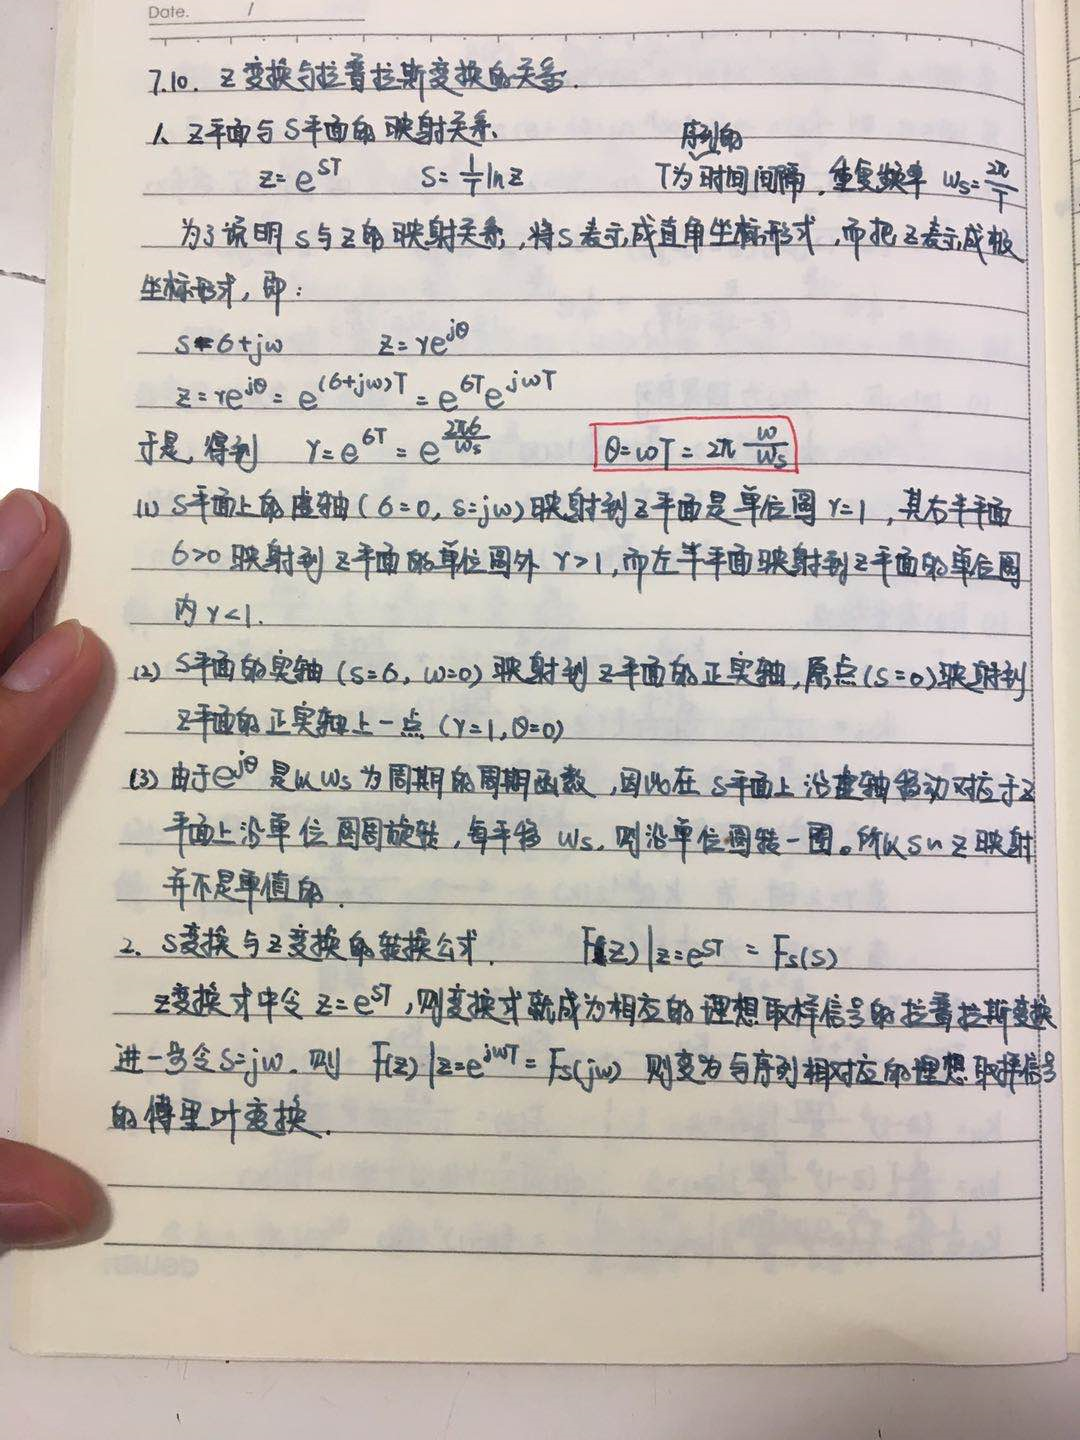 Date. /
7.10. Z变换与拉普拉斯变换的关系.
1、Z平面与S平面的映射关系.
z=e^{ST} S=\frac{1}{T}lnz T为序列的时间间隔,重复频率 ws=\frac{2π}{T}
为了说明S与Z的映射关系,将S表示成直角坐标形式,而把Z表示成极
坐标形式,即:
S=σ+jw z=re^{jθ}
z=re^{jθ}=e^{(σ+jw)T}=e^{σT}e^{jwT}
于是,得到 r=e^{σT}=e^{\frac{2πσ}{ws}} θ=wT=2π\frac{w}{ws}
(1) S平面上的虚轴(σ=0,S=jw)映射到Z平面是单位圆r=1,其右半平面
σ>0映射到Z平面的单位圆外r>1,而左半平面映射到Z平面的单位圆
内r<1.
(2) S平面的实轴(S=σ,w=0)映射到Z平面的正实轴,原点(S=0)映射到
Z平面的正实轴上一点(r=1,θ=0)
(3) 由于e^{jθ}是以ws为周期的周期函数,因此在S平面上沿虚轴移动对应于Z
平面上沿单位圆周旋转,每平移ws,则沿单位圆转一圈。所以S~Z映射
并不是单值的.
2. S变换与Z变换的转换公式. F(z)|z=e^{ST}=Fs(s)
Z变换式中令z=e^{ST},则变换式就成为相应的理想取样信号的拉普拉斯变换
进一步令S=jw.则 F(z)|z=e^{jwT}=Fs(jw) 则变为与序列相对应的理想取样信号
的傅里叶变换.